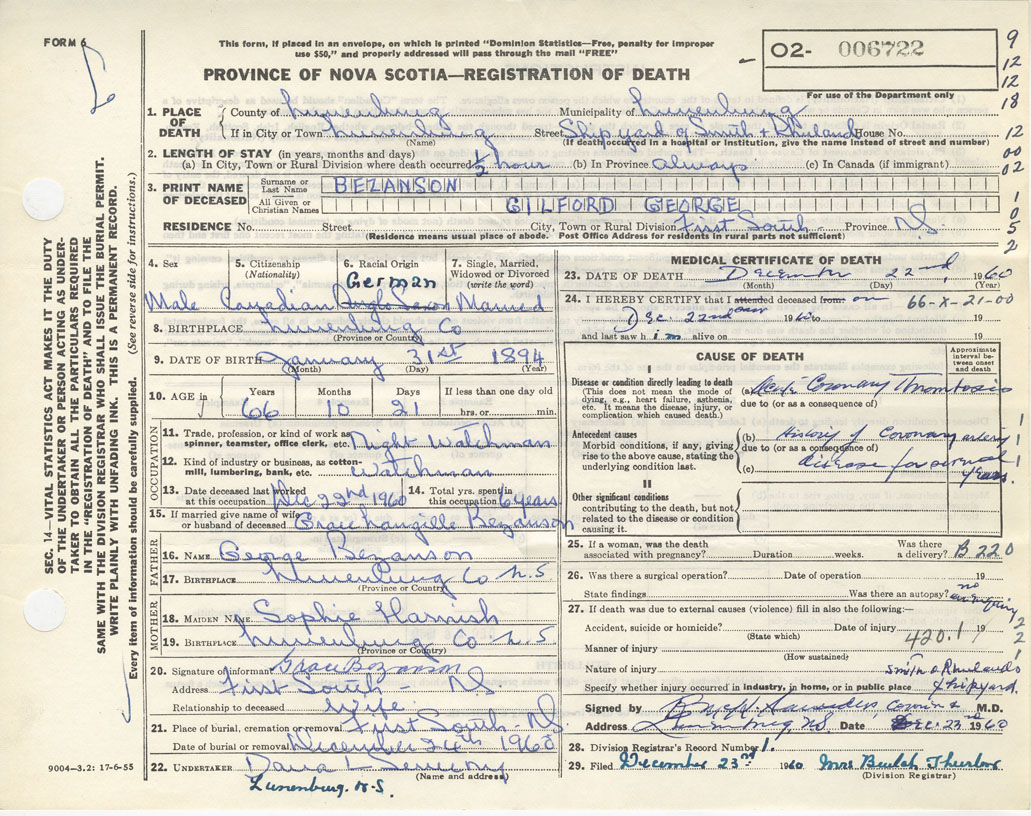 FORM 6
This form, if placed in an envelope, on which is printed "Dominion Statistics—Free, penalty for improper
use $50," and properly addressed will pass through the mail "FREE"
PROVINCE OF NOVA SCOTIA—REGISTRATION OF DEATH
O2- 006722
For use of the Department only
9
12
12
18
12
00
02
1
0
5
2
SEC. 14—VITAL STATISTICS ACT MAKES IT THE DUTY
OF THE UNDERTAKER OR PERSON ACTING AS UNDER-
TAKER TO OBTAIN ALL THE PARTICULARS REQUIRED
IN THE "REGISTRATION OF DEATH" AND TO FILE THE
SAME WITH THE DIVISION REGISTRAR WHO SHALL ISSUE THE BURIAL PERMIT.
WRITE PLAINLY WITH UNFADING INK. THIS IS A PERMANENT RECORD.
Every item of information should be carefully supplied. (See reverse side for instructions.)
1. PLACE OF DEATH County of Lunenburg Municipality of Lunenburg
If in City or Town Lunenburg Street Shipyard of Smith & Rhuland House No.
(Name) (If death occurred in a hospital or institution, give the name instead of street and number)
2. LENGTH OF STAY (in years, months and days)
(a) In City, Town or Rural Division where death occurred 1/2 hour (b) In Province always (c) In Canada (if immigrant)
3. PRINT NAME OF DECEASED Surname or Last Name BEZANSON
All Given or Christian Names GILFORD GEORGE
RESIDENCE No. Street City, Town or Rural Division First South Province N.S.
(Residence means usual place of abode. Post Office Address for residents in rural parts not sufficient)
4. Sex 5. Citizenship (Nationality) 6. Racial Origin 7. Single, Married, Widowed or Divorced (write the word)
German
Male Canadian Anglo Saxon Married
8. BIRTHPLACE Lunenburg Co
(Province or Country)
9. DATE OF BIRTH January 31st 1894
(Month) (Day) (Year)
10. AGE in Years Months Days If less than one day old
66 10 21 hrs. or min.
OCCUPATION
11. Trade, profession, or kind of work as spinner, teamster, office clerk, etc. Night Watchman
12. Kind of industry or business, as cotton-mill, lumbering, bank, etc. Watchman
13. Date deceased last worked at this occupation Dec 22nd 1960 14. Total yrs. spent in this occupation 6 years
15. If married give name of wife or husband of deceased Grace Bezanson
FATHER
16. NAME George Bezanson
17. BIRTHPLACE Lunenburg Co N.S
(Province or Country)
MOTHER
18. MAIDEN NAME Sophie Harnish
19. BIRTHPLACE Lunenburg Co N.S
(Province or Country)
20. Signature of informant Grace Bezanson
Address First South - N.S.
Relationship to deceased Wife
21. Place of burial, cremation or removal First South - N.S.
Date of burial or removal December 24th 1960
22. UNDERTAKER
(Name and address)
Lunenburg. N.S.
9004-3.2: 17-6-55
MEDICAL CERTIFICATE OF DEATH
23. DATE OF DEATH December 22nd 1960
(Month) (Day) (Year)
24. I HEREBY CERTIFY that I attended deceased from on 66-X-21-00
Dec. 22nd 1960 to 19
and last saw him alive on 19
CAUSE OF DEATH
Approximate interval between onset and death
I
Disease or condition directly leading to death
(This does not mean the mode of dying, e.g., heart failure, asthenia, etc. It means the disease, injury, or complication which caused death.)
(a) Coronary Thrombosis
due to (or as a consequence of)
Antecedent causes
Morbid conditions, if any, giving rise to the above cause, stating the underlying condition last.
(b) History of Coronary artery
due to (or as a consequence of)
(c) disease for several years.
II
Other significant conditions
contributing to the death, but not related to the disease or condition causing it.
25. If a woman, was the death associated with pregnancy? Duration weeks. Was there a delivery? B 220
26. Was there a surgical operation? Date of operation 19
State findings Was there an autopsy? no
27. If death was due to external causes (violence) fill in also the following:—
Accident, suicide or homicide? Date of injury 19
(State which)
420.1
Manner of injury
(How sustained)
Nature of injury Smith & Rhulands
Specify whether injury occurred in industry, in home, or in public place Shipyard.
Signed by M.D.
Address Lunenburg, N.S. Date Dec. 23rd 1960
28. Division Registrar's Record Number 1.
29. Filed December 23rd 1960 Mrs Beulah
(Division Registrar)